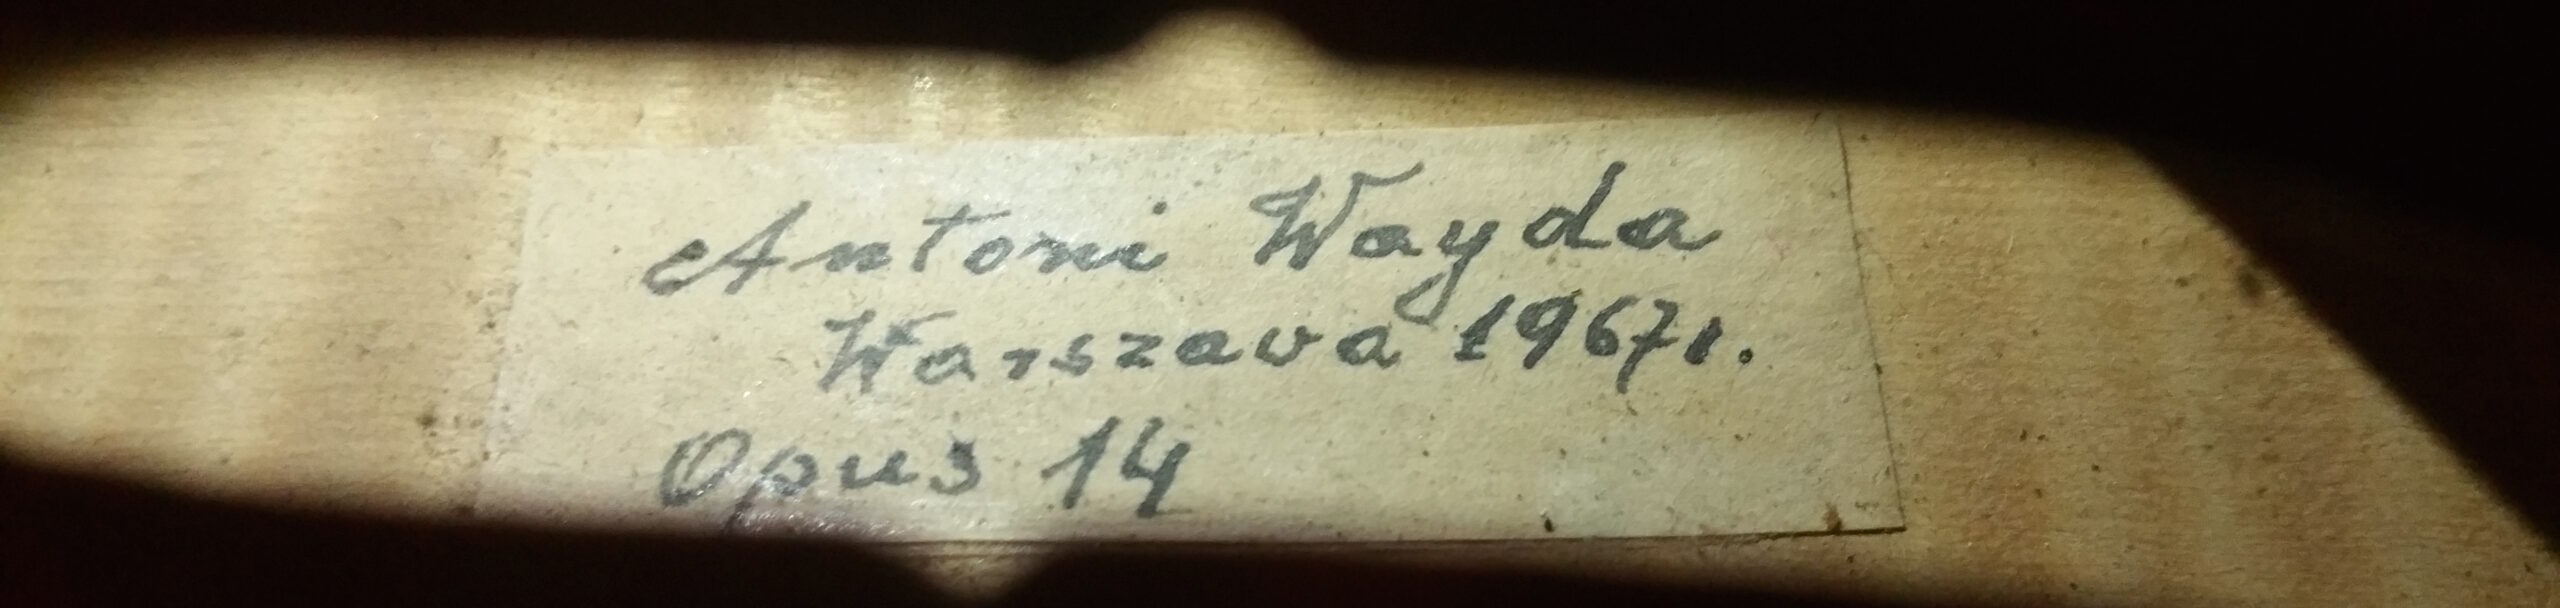 Antoni Wayda
Warszava 1967r.
Opus 14